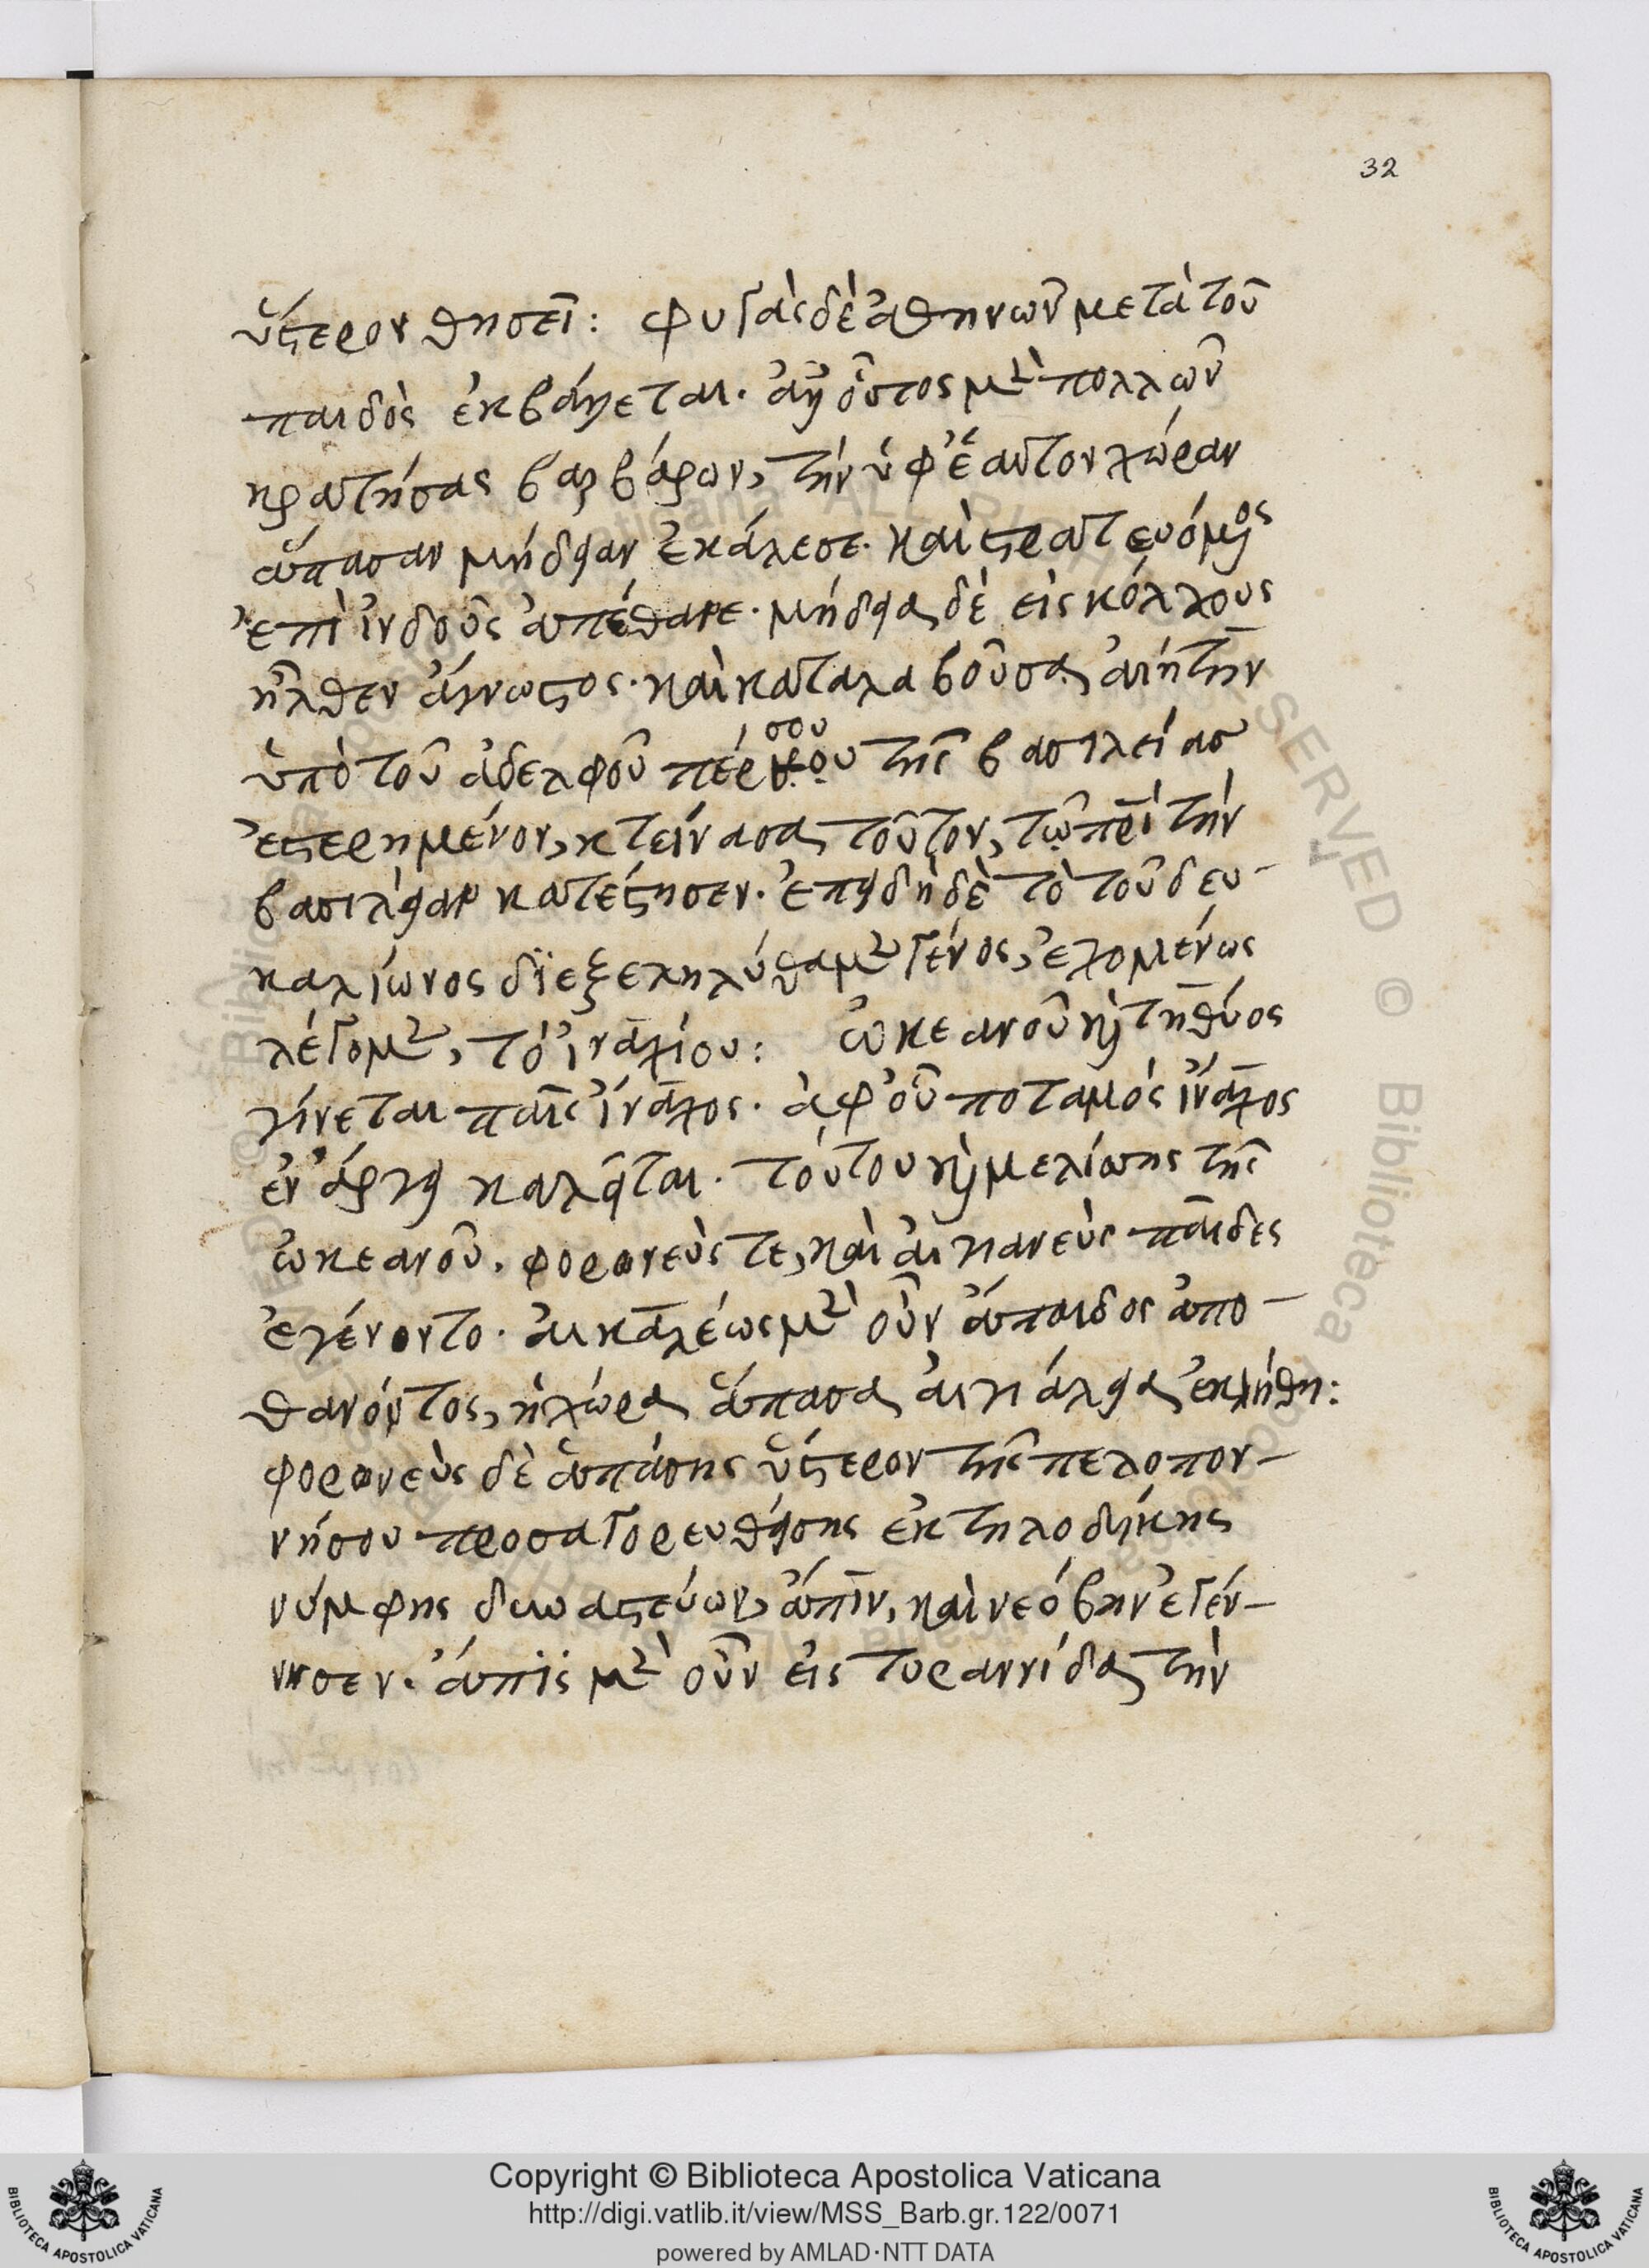 32
ὕστερον θησεῖ: φυγὰς δὲ ἀθηνῶν μετὰ τοῦ
παιδὸς ἐκβάλλεται. ἀλλ' οὗτος μὲν πολλῶν
κρατήσας βαρβάρων, τὴν ὑφ' ἑαυτὸν χώραν
ἅπασαν μήδειαν ἐκάλεσε. καὶ στρατευόμενος
ἐπὶ ἰνδοὺς ἀπέθανε. μήδεια δὲ εἰς κόλχους
ἦλθεν ἄγνωστος. καὶ καταλαβοῦσα αἰήτην
ὑπὸ τοῦ ἀδελφοῦ πέρσου τῆς βασιλείας
ἐστερημένον, κτείνασα τοῦτον, τῷ πατρὶ τὴν
βασιλείαν κατέστησεν. ἐπειδὴ δὲ τὸ τοῦ δευ-
καλίωνος διεξεληλύθαμεν γένος, ἐχομένως
λέγομεν, τὸ ἰνάχιου: ὠκεανοῦ καὶ τηθύος
γίνεται παῖς ἴναχος. ἀφ' οὗ ποταμὸς ἴναχος
ἐν ἄργει καλεῖται. τούτου καὶ μελίωης τῆς
ὠκεανοῦ. φορωνεύς τε, καὶ αἰγιανεὺς παῖδες
ἐγένοντο. αἰκαλέως μὲν οὖν ἄπαιδος ἀπο-
θανόντος, ἡ χώρα ἅπασα αἰγιάλεια ἐκλήθη:
φορωνεὺς δὲ ἁπάσης ὕστερον τῆς πελοπον-
νήσου προσαγορευθείσης ἐκ τηλοδίκης
νύμφης δυναστεύων, ἄπιν, καὶ νεόβην ἐγέν-
νησεν. ἄπϊς μὲν οὖν εἰς τυραννίδα τὴν
Copyright © Biblioteca Apostolica Vaticana
http://digi.vatlib.it/view/MSS_Barb.gr.122/0071
powered by AMLAD·NTT DATA
BIBLIOTECA APOSTOLICA VATICANA
BIBLIOTECA APOSTOLICA VATICANA